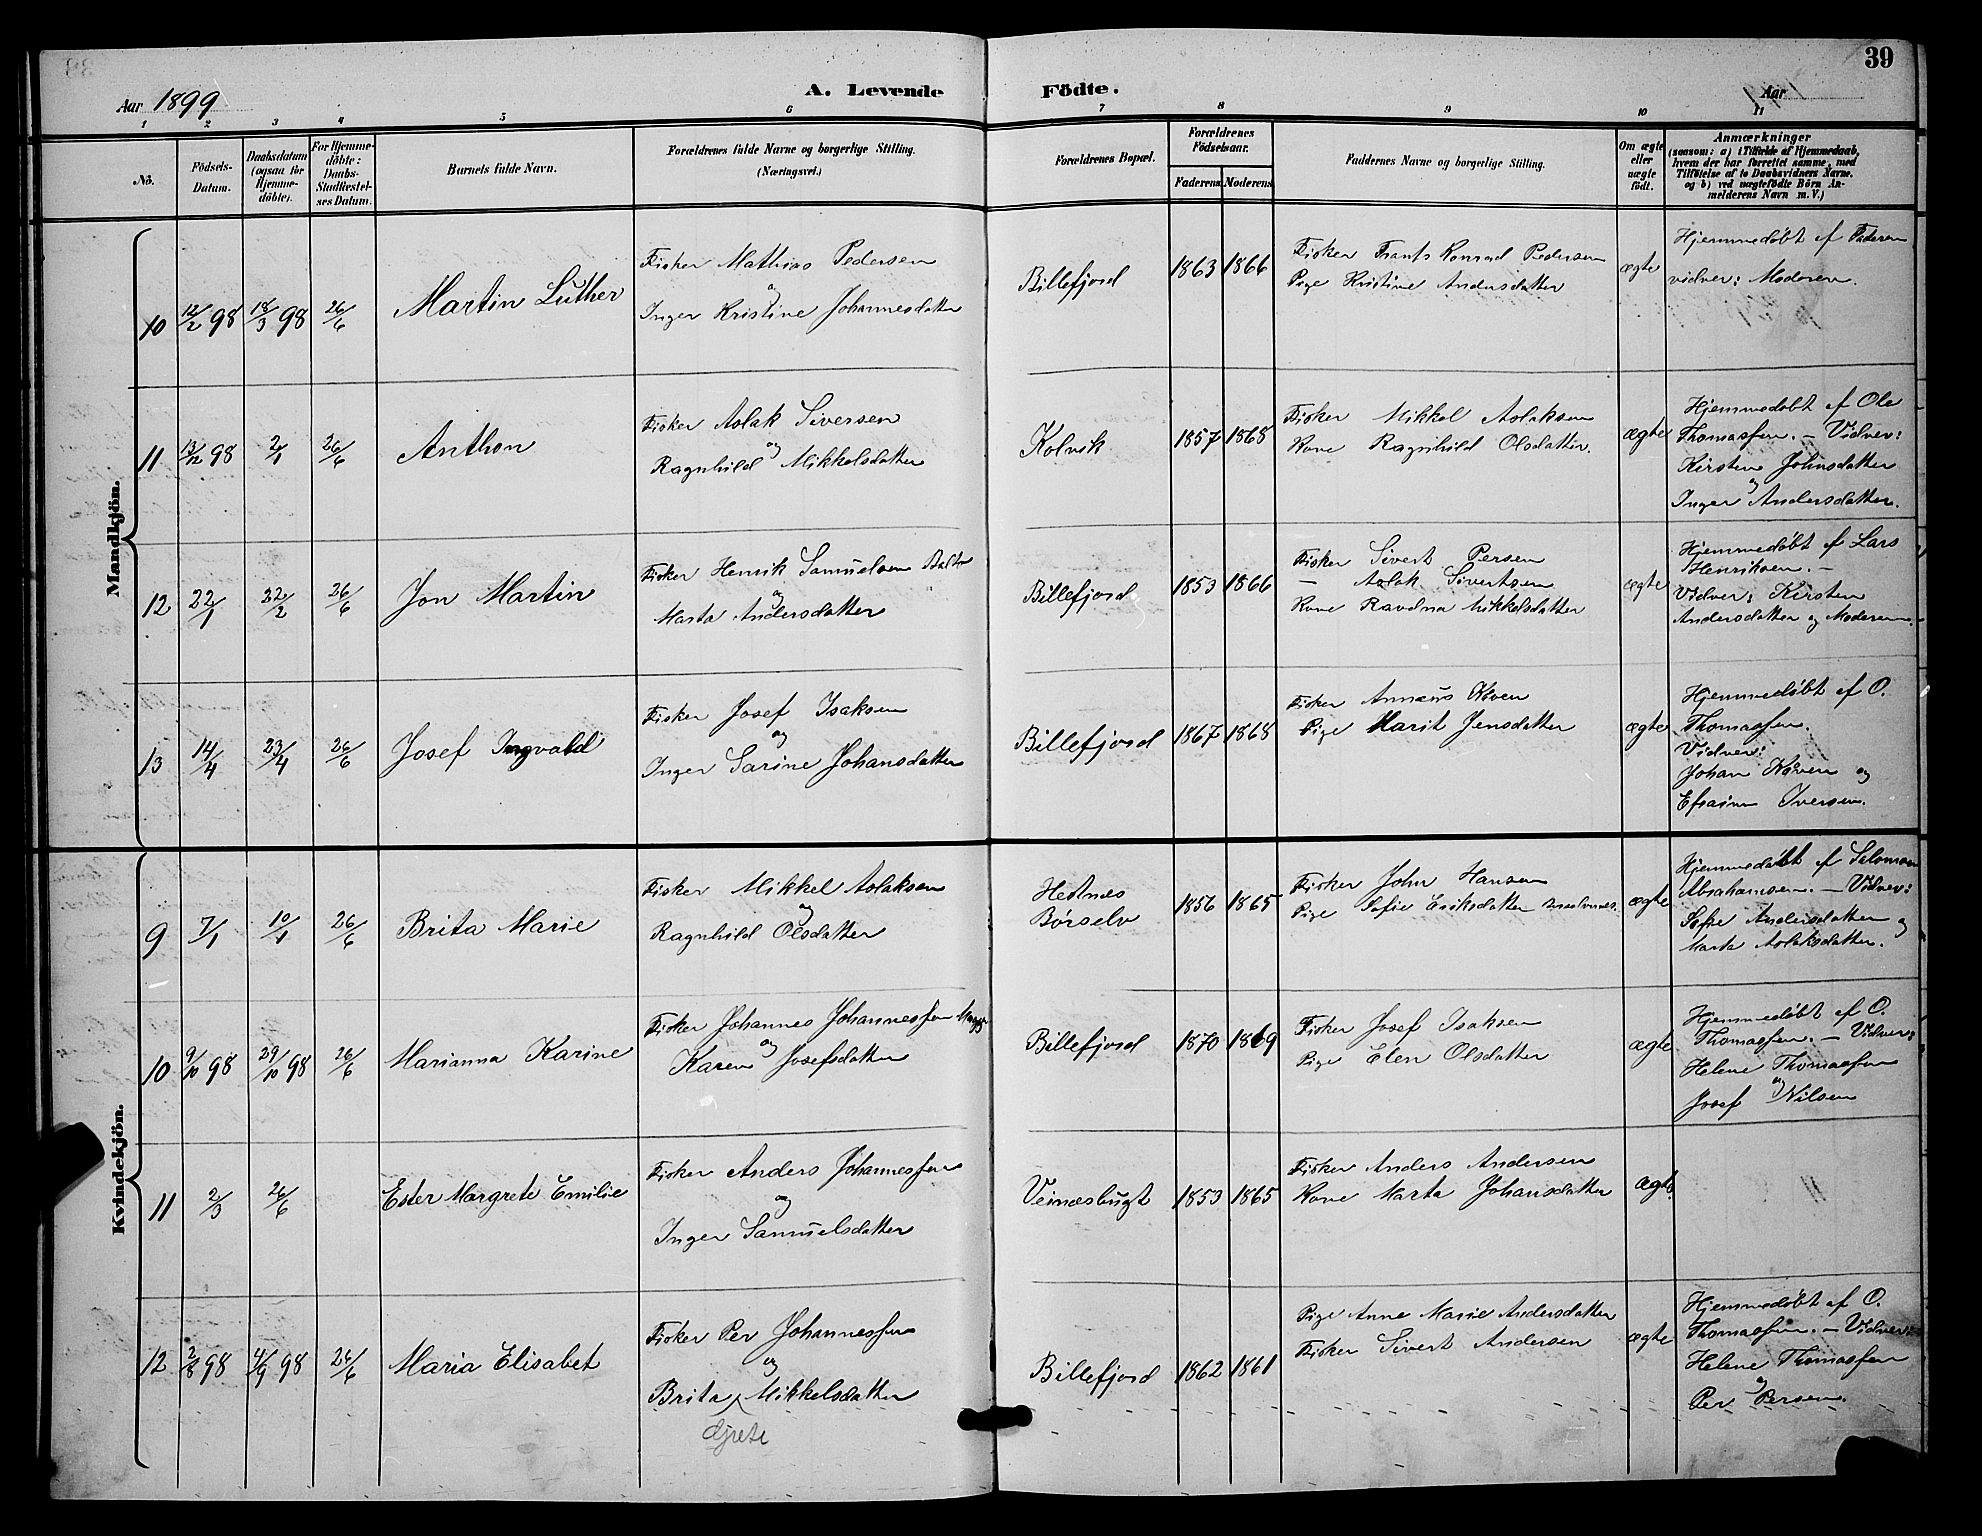 39
Aar 1899
A. Levende Födte.
Aar
1 2 3 4 5 6 7 8 9 10 11
No.
Födsels-Datum.
Daabsdatum (ogsaa for Hjemme-döbte).
For Hjemme-döbte: Daabs-Stadfæstel-ses Datum.
Barnets fulde Navn.
Forældrenes fulde Navne og borgerlige Stilling. (Næringsvei.)
Forældrenes Bopæl.
Forældrenes Födselsaar.
Faderens Moderens
Faddernes Navne og borgerlige Stilling.
Om ægte eller uægte födt.
Anmærkninger
(saasom: a) i Tilfælde af Hjemmedaab,
hvem der har forrettet samme, med
Tilföielse af to Daabsvidners Navne.
og b) ved uægtefödte Börn An-
melderens Navn m. V.)
Mandkjön.
10 12/2 98 18/3 98 26/6 Martin Luther
Fisker Mathias Pedersen
og
Inger Kristine Johannesdatter
Billefjord 1863 1866
Fisker Frants Konrad Pedersen
Pige Kristine Andersdatter
ægte
Hjemmedøbt af Faderen
vidner: Moderen.
11 13/12 98 2/1 26/6 Anthon
Fisker Aslak Siversen
og
Ragnhild Mikkelsdatter
Kolvik 1857 1868
Fisker Mikkel Aslaksen
Kone Ragnhild Olsdatter.
ægte
Hjemmedøbt af Ole
Thomassen. – Vidner:
Kirsten Johnsdatter
og
Inger Andersdatter.
12 22/1 22/2 26/6 Jon Martin
Fisker Henrik Samuelsen
og
Marta Andersdatter
Billefjord 1853 1866
Fisker Sivert Persen
– Aslak Sivertsen
Kone Ravdna Mikkelsdatter
ægte
Hjemmedøbt af Lars
Henriksen. –
Vidner: Kirsten
Andersdatter og Moderen.
13 14/4 23/4 26/6 Josef Ingvald
Fisker Josef Isaksen
og
Inger Sarine Johansdatter
Billefjord 1867 1868
Fisker Annæus Kåven
Pige Marit Jensdatter
ægte
Hjemmedøbt af O.
Thomassen.
Vidner:
Johan Kåven og
Efraim Iversen.
Kvindekjön.
9 7/1 10/1 26/6 Brita Marie
Fisker Mikkel Aslaksen
og
Ragnhild Olsdatter
Hestnes
Børselv
1856 1865
Fisker John Hansen
Pige Sofie Eriksdatter
ægte
Hjemmedøbt af Salomon
Abrahamsen. – Vidner:
Sofie Andersdatter og
Marta Aslaksdatter.
10 9/10 98 29/10 98 26/6 Marianna Karine
Fisker Johannes Johannessen
og
Karen Josefsdatter
Billefjord 1870 1869
Fisker Josef Isaksen
Pige Elen Olsdatter
ægte
Hjemmedøbt af O.
Thomassen. – Vidner:
Helene Thomassen
og
Josef Nilsen
11 2/3 26/6 Ester Margrete Emilie
Fisker Anders Johannessen
og
Inger Samuelsdatter
Veinesbugt 1853 1865
Fisker Anders Andersen
Kone Marta Johansdatter
ægte
12 2/8 98 4/9 98 26/6 Maria Elisabet
Fisker Per Johannessen
og
Brita Mikkelsdatter
Grete
Billefjord 1862 1861
Pige Anne Marie Andersdatter
Fisker Sivert Andersen
ægte
Hjemmedøbt af O.
Thomassen. – Vidner:
Helene Thomassen
og
Per Persen.